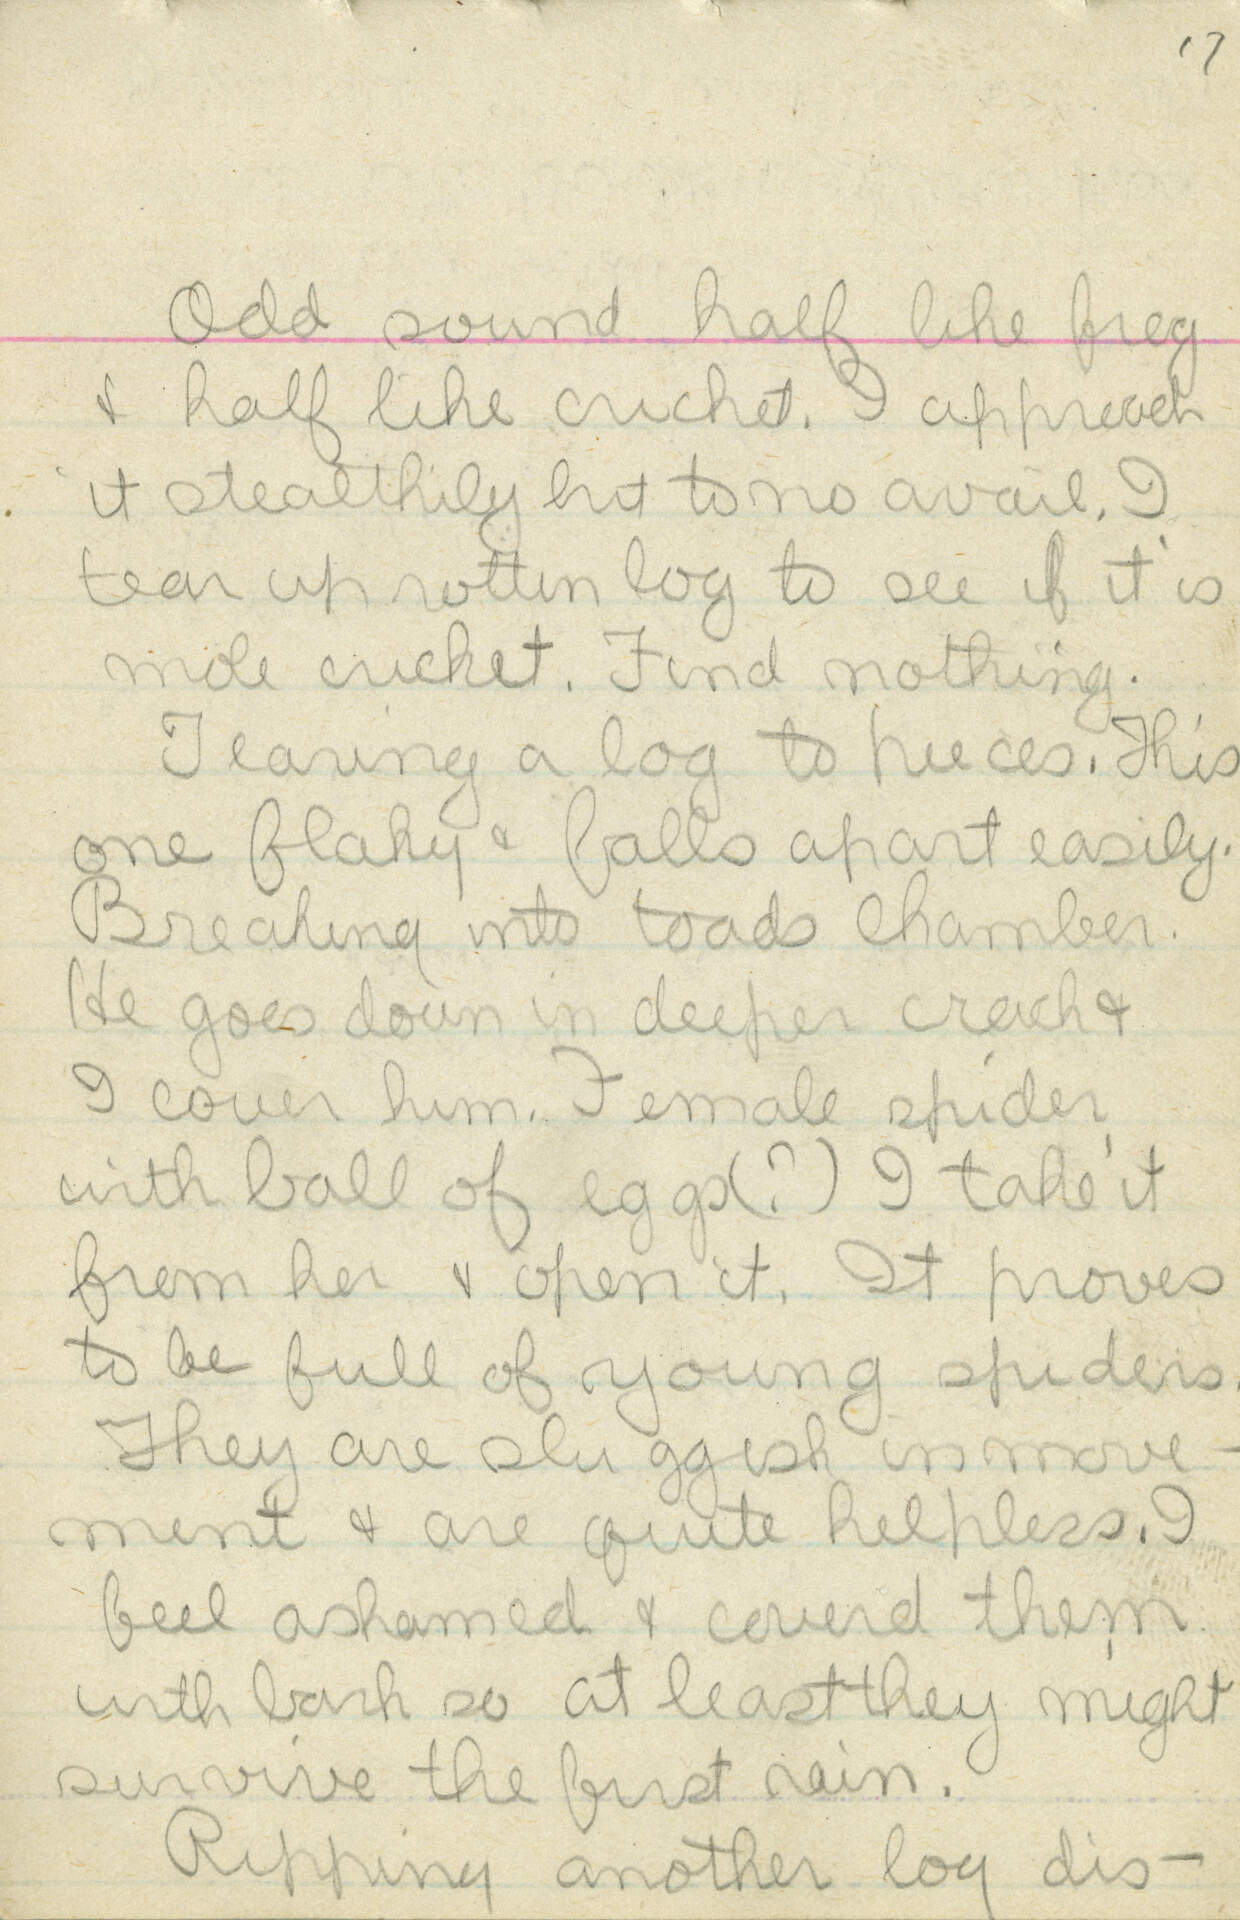 17
Odd sound half like frog
& half like cricket. I approach
it stealthily but to no avail. I
tear up rotten log to see if it is
mole cricket. Find nothing.
Tearing a log to pieces. This
one flaky & falls apart easily.
Breaking into toads chamber.
He goes down in deeper crack &
I cover him. Female spider
with ball of eggs(?) I take it
from her & open it. It proves
to be full of young spiders.
They are sluggish in move-
ment & are quite helpless. I
feel ashamed & coverd them
with bark so at least they might
survive the first rain.
Ripping another log dis-